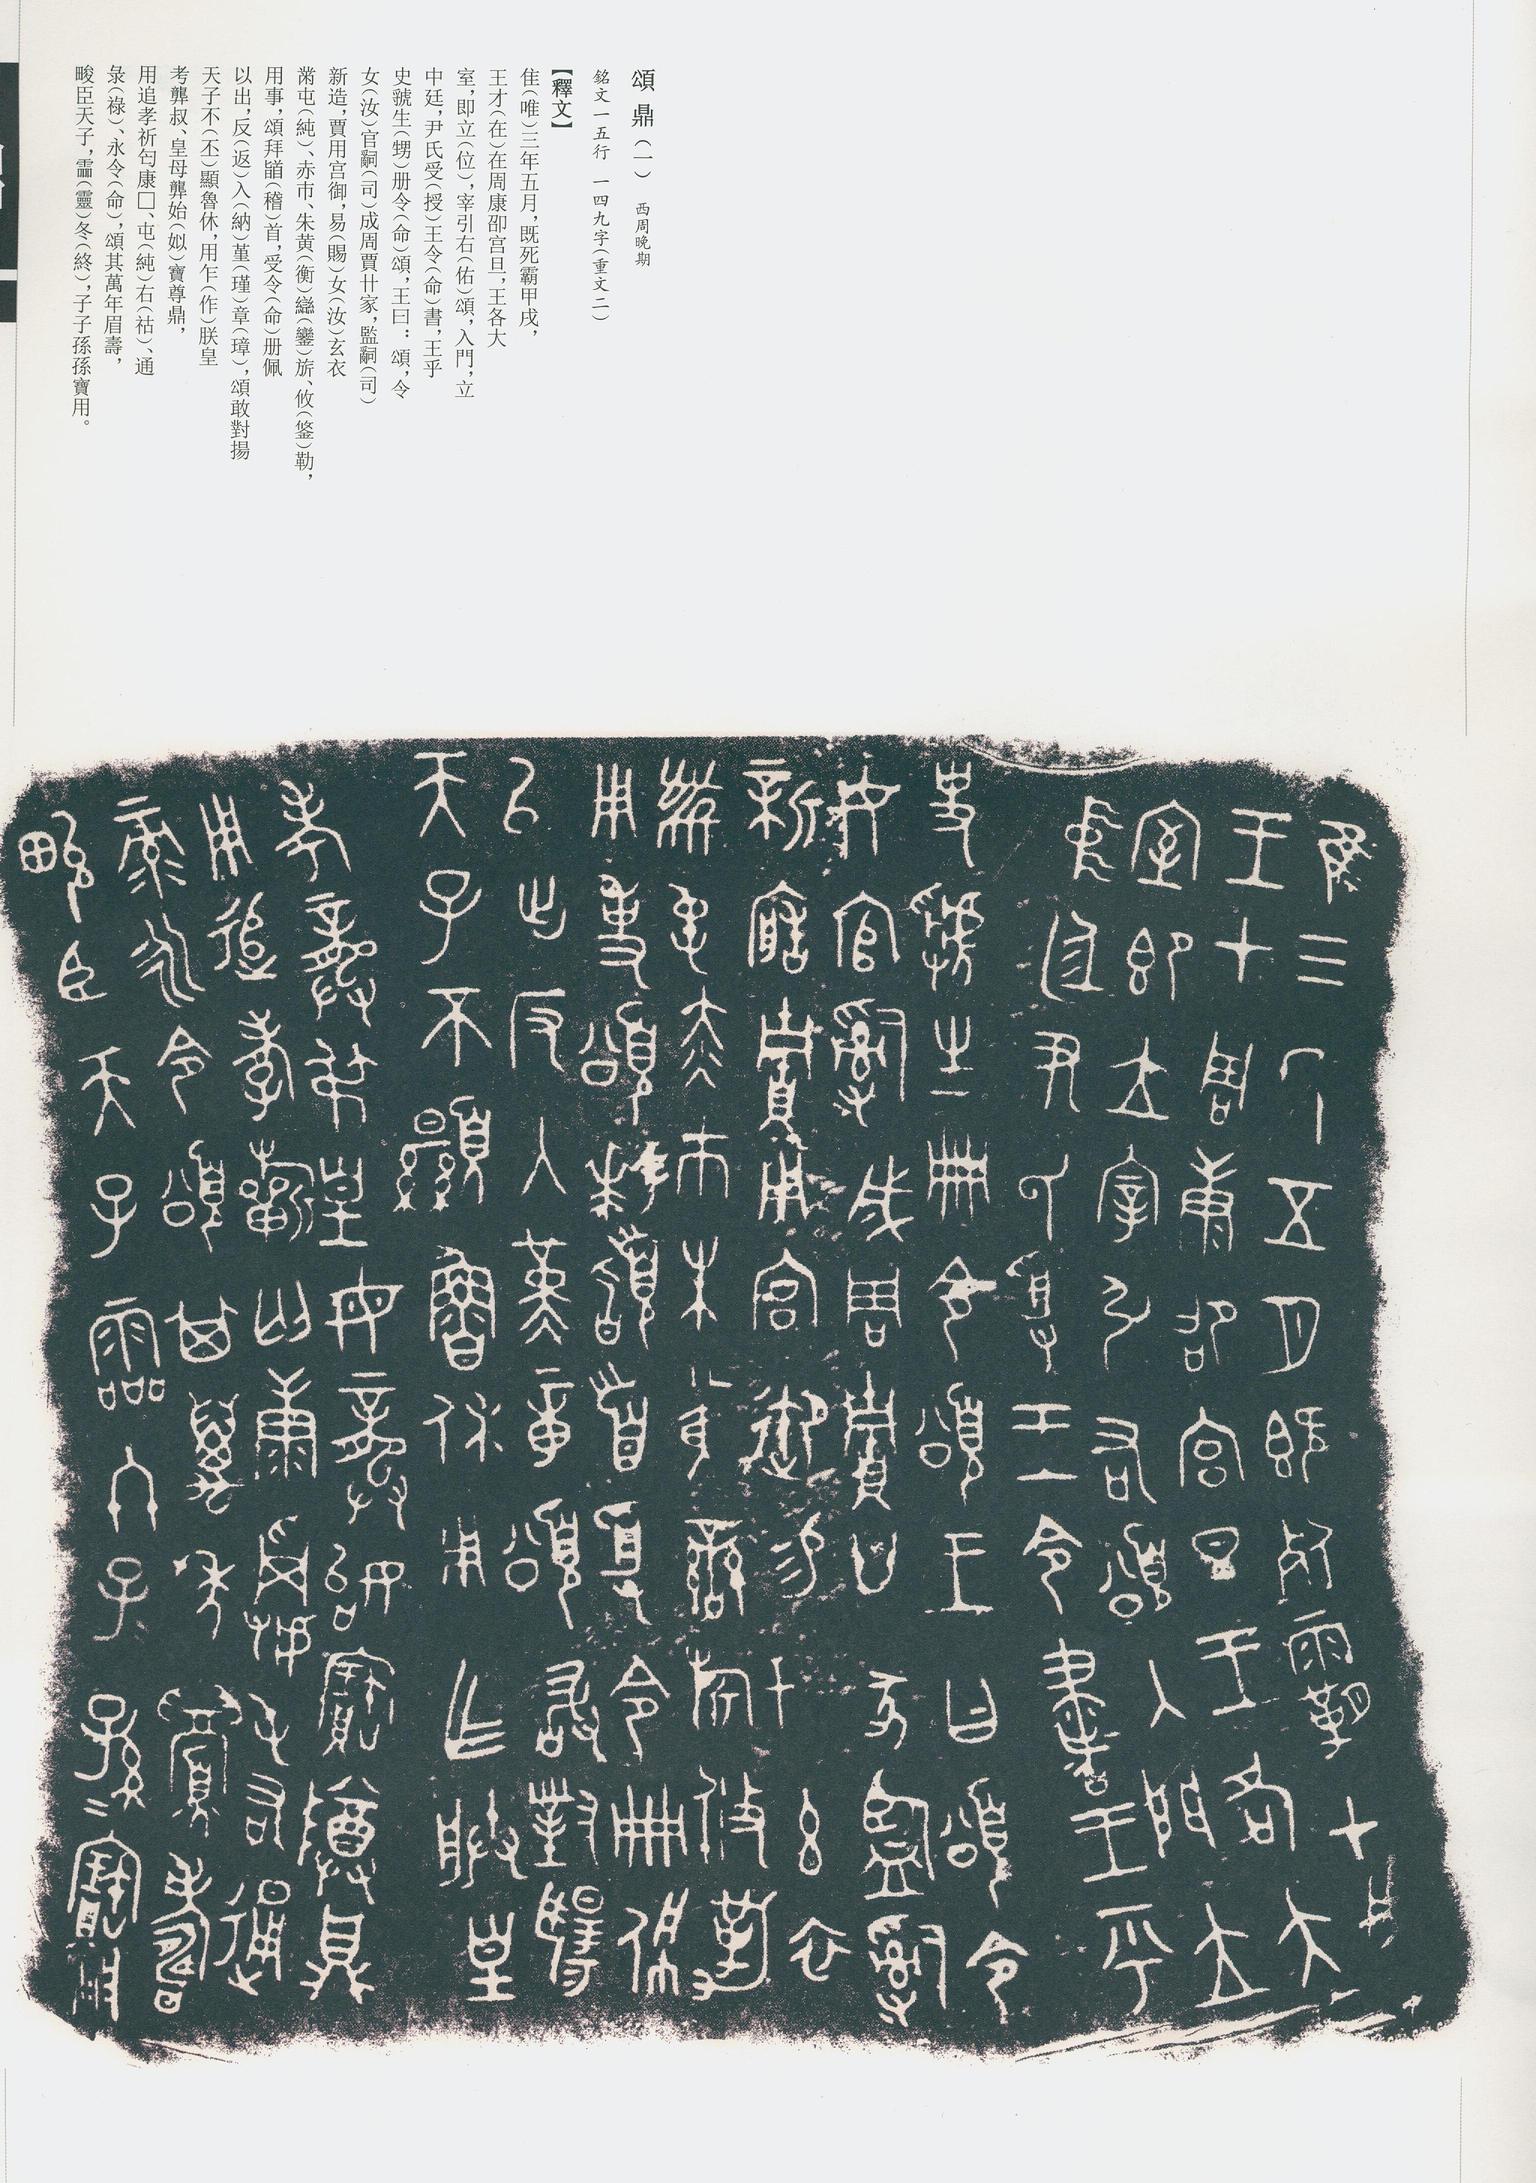 頌鼎(一) 西周晚期
銘文一五行 一四九字(重文二)
【釋文】
隹(唯)三年五月,既死霸甲戌,
王才(在)在周康卲宫旦,王各大
室,即立(位),宰引右(佑)頌,入門,立
中廷,尹氏受(授)王令(命)書,王乎
史虢生(甥)册令(命)頌,王曰:頌,令
女(汝)官嗣(司)成周賈廿家,監嗣(司)
新造,賈用宫御,易(賜)女(汝)玄衣
黹屯(純)、赤巿、朱黄(衡)䜌(鑾)旂、攸(鋚)勒,
用事,頌拜𩒨(稽)首,受令(命)册佩
以出,反(返)入(納)堇(瑾)章(璋),頌敢對揚
天子不(丕)顯魯休,用乍(作)朕皇
考龏叔、皇母龏始(姒)寶尊鼎,
用追孝祈匄康□、屯(純)右(祜)、通
彔(祿)、永令(命),頌其萬年眉壽,
畯臣天子,霝(靈)冬(終),子子孫孫寶用。